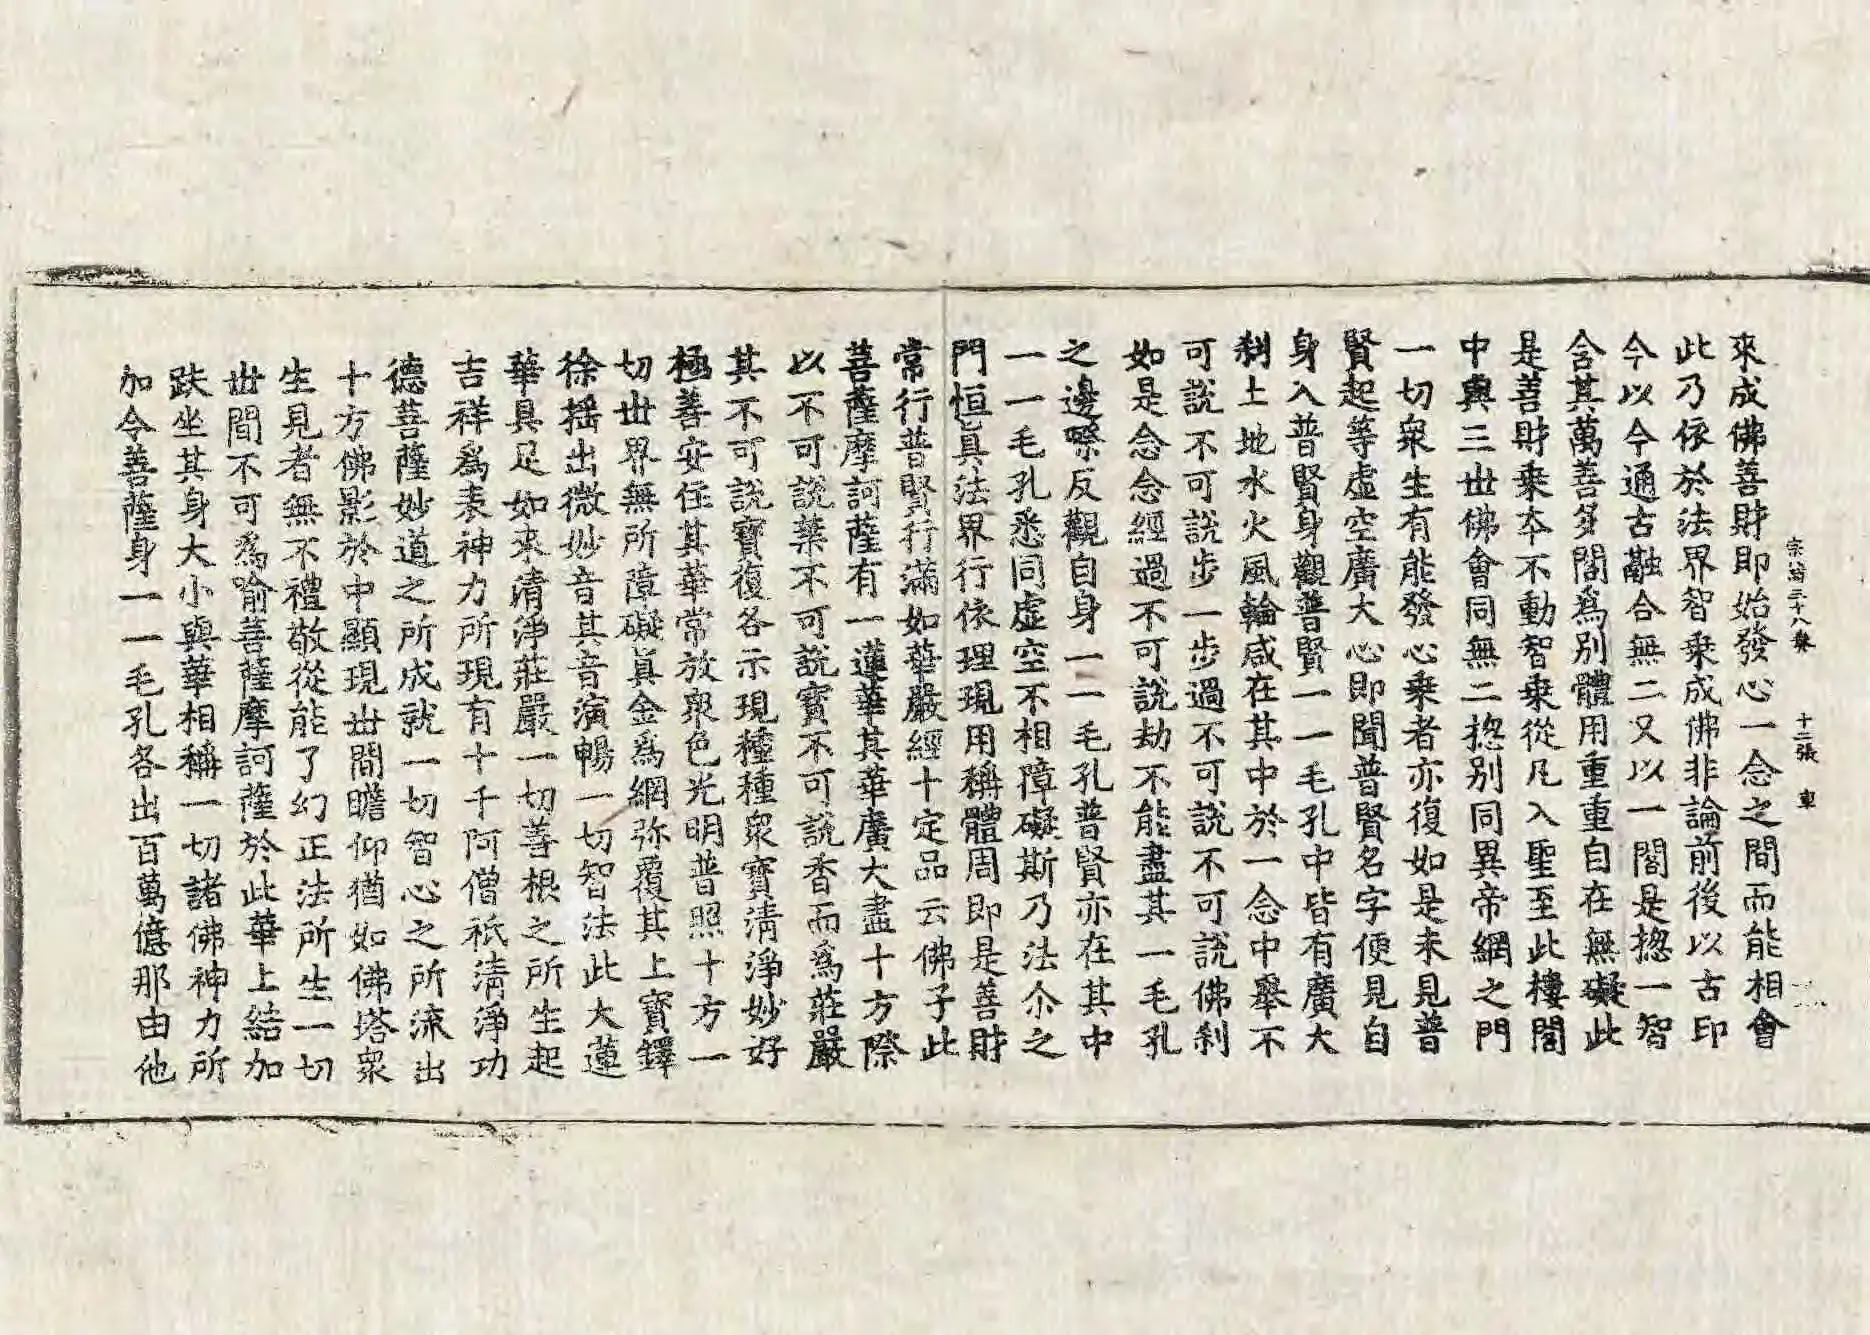 宗鏡三十八卷　十二張　車
來成佛善財即始發心一念之間而能相會
此乃依於法界智乘成佛非論前後以古印
今以今通古融合無二又以一閣是揔一智
含其萬善多閣爲別體用重重自在無礙此
是善財乘夲不動智乘從凡入聖至此樓閣
中與三世佛會同無二揔別同異帝網之門
一切衆生有能發心乘者亦復如是來見普
賢起等虛空廣大心即聞普賢名字便見自
身入普賢身觀普賢一一毛孔中皆有廣大
刹土地水火風輪咸在其中於一念中舉不
可說不可說步一步過不可說不可說佛刹
如是念念經過不可說劫不能盡其一毛孔
之邊際反觀自身一一毛孔普賢亦在其中
一一毛孔悉同虛空不相障礙斯乃法尒之
門恒眞法界行依理現用稱體周即是善財
常行普賢行滿如華嚴經十定品云佛子此
菩薩摩訶薩有一蓮華其華廣大盡十方際
以不可說葉不可說寶不可說香而爲莊嚴
其不可說寶復各示現種種衆寶清淨妙好
極善安住其華常放衆色光明普照十方一
切世界無所障礙眞金爲網弥覆其上寶鐸
徐揺出微妙音其音演暢一切智法此大蓮
華具足如來清淨莊嚴一切善根之所生起
吉祥爲表神力所現有十千阿僧祇清淨功
德菩薩妙道之所成就一切智心之所流出
十方佛影於中顯現世間瞻仰猶如佛塔衆
生見者無不禮敬從能了幻正法所生一切
世間不可爲喻菩薩摩訶薩於此華上結加
趺坐其身大小與華相稱一切諸佛神力所
加令菩薩身一一毛孔各出百萬億那由他